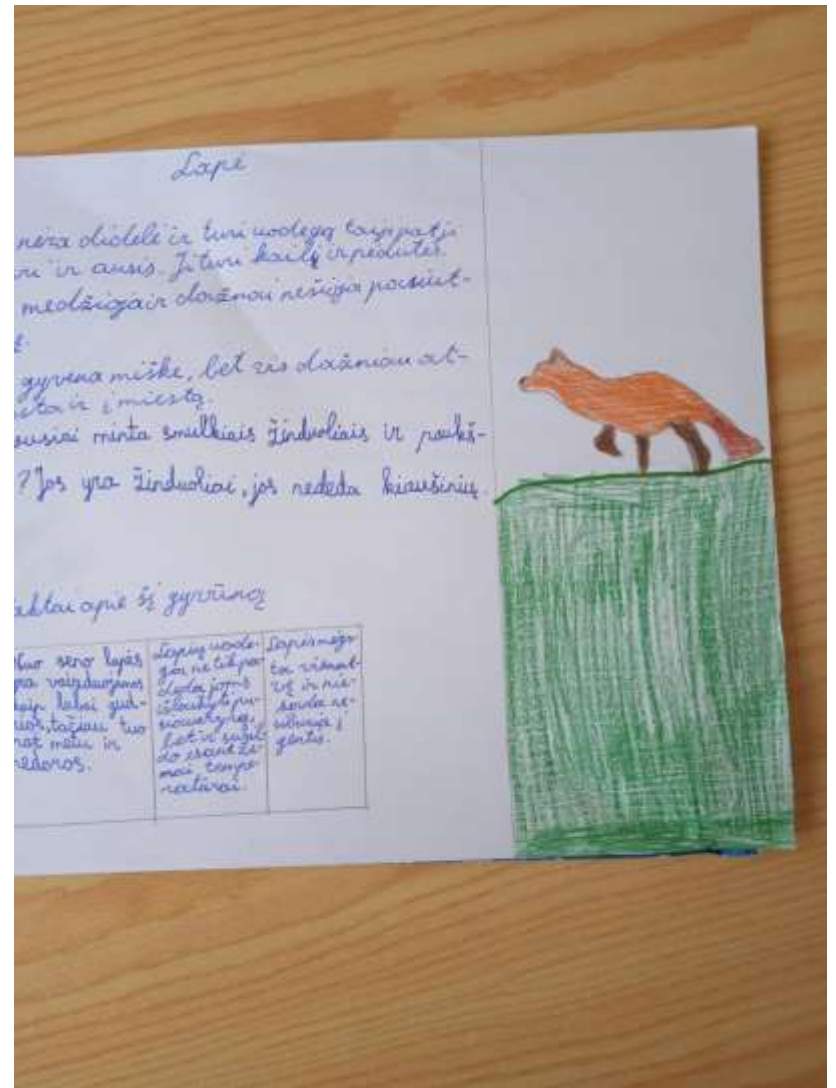 Lapė
nėra didelė ir turi uodegą taip pat ji
ir ausis. Ji turi kailį ir pėdutes.
medžioja ir dažnai nešioja pasiut-
gyvena miške, bet vis dažniau at-
ir į miestą.
minta smulkiais žinduoliais ir paukš-
? Jos yra žinduoliai, jos nededa kiaušinių.
apie šį gyvūną
Nuo seno lapės
vaizduojamos
kaip labai gud-
rios, tačiau tuo
pat metu ir
nedoros.
Lapių uode-
ga ne tik pa-
deda joms
išlaikyti pu-
siausvyrą,
bet ir sušil-
do esant že-
mai tempe-
ratūrai.
Lapės mėgs-
ta vienat-
vę ir nie-
sbuna į
gentis.